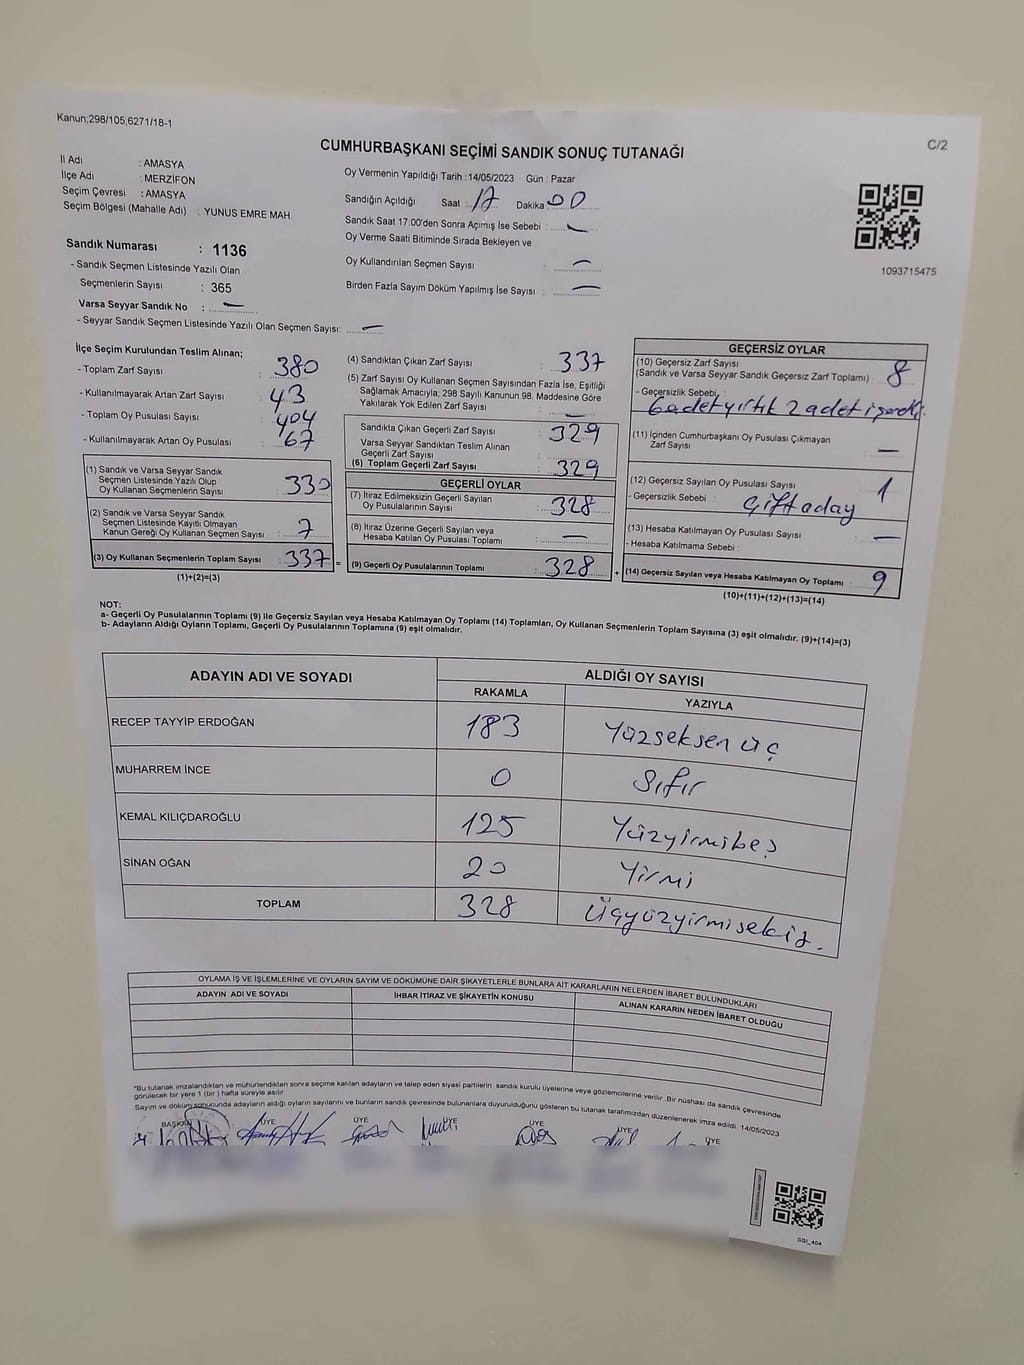 Kanun;298/105;6271/18-1
C/2
CUMHURBAŞKANI SEÇİMİ SANDIK SONUÇ TUTANAĞI
İl Adı : AMASYA
İlçe Adı : MERZİFON
Seçim Çevresi : AMASYA
Seçim Bölgesi (Mahalle Adı) : YUNUS EMRE MAH.
Sandık Numarası : 1136
- Sandık Seçmen Listesinde Yazılı Olan
Seçmenlerin Sayısı : 365
Varsa Seyyar Sandık No : —
- Seyyar Sandık Seçmen Listesinde Yazılı Olan Seçmen Sayısı: —
Oy Vermenin Yapıldığı Tarih :14/05/2023 Gün : Pazar
Sandığın Açıldığı Saat : 17 Dakika : 00
Sandık Saat 17:00'den Sonra Açımış İse Sebebi : —
Oy Verme Saati Bitiminde Sırada Bekleyen ve
Oy Kullandırılan Seçmen Sayısı : —
Birden Fazla Sayım Döküm Yapılmış İse Sayısı : —
1093715475
İlçe Seçim Kurulundan Teslim Alınan;
- Toplam Zarf Sayısı : 380
- Kullanılmayarak Artan Zarf Sayısı : 43
- Toplam Oy Pusulası Sayısı : 404
- Kullanılmayarak Artan Oy Pusulası : 67
(1) Sandık ve Varsa Seyyar Sandık
Seçmen Listesinde Yazılı Olup
Oy Kullanan Seçmenlerin Sayısı : 330
(2) Sandık ve Varsa Seyyar Sandık
Seçmen Listesinde Kayıtlı Olmayan
Kanun Gereği Oy Kullanan Seçmen Sayısı : 7
(3) Oy Kullanan Seçmenlerin Toplam Sayısı : 337
(1)+(2)=(3)
(4) Sandıktan Çıkan Zarf Sayısı : 337
(5) Zarf Sayısı Oy Kullanan Seçmen Sayısından Fazla İse, Eşitliği
Sağlamak Amacıyla; 298 Sayılı Kanunun 98. Maddesine Göre
Yakılarak Yok Edilen Zarf Sayısı : —
Sandıkta Çıkan Geçerli Zarf Sayısı : 329
Varsa Seyyar Sandıktan Teslim Alınan
Geçerli Zarf Sayısı :
(6) Toplam Geçerli Zarf Sayısı : 329
GEÇERLİ OYLAR
(7) İtiraz Edilmeksizin Geçerli Sayılan
Oy Pusulalarının Sayısı : 328
(8) İtiraz Üzerine Geçerli Sayılan veya
Hesaba Katılan Oy Pusulası Toplamı : —
(9) Geçerli Oy Pusulalarının Toplamı : 328
GEÇERSİZ OYLAR
(10) Geçersiz Zarf Sayısı
(Sandık ve Varsa Seyyar Sandık Geçersiz Zarf Toplamı) : 8
- Geçersizlik Sebebi :
6 adet yırtık 2 adet işaretli.
(11) İçinden Cumhurbaşkanı Oy Pusulası Çıkmayan
Zarf Sayısı : —
(12) Geçersiz Sayılan Oy Pusulası Sayısı : 1
- Geçersizlik Sebebi : Çift aday
(13) Hesaba Katılmayan Oy Pusulası Sayısı : —
- Hesaba Katılmama Sebebi :
(14) Geçersiz Sayılan veya Hesaba Katılmayan Oy Toplamı : 9
(10)+(11)+(12)+(13)=(14)
NOT:
a- Geçerli Oy Pusulalarının Toplamı (9) ile Geçersiz Sayılan veya Hesaba Katılmayan Oy Toplamı (14) Toplamları, Oy Kullanan Seçmenlerin Toplam Sayısına (3) eşit olmalıdır. (9)+(14)=(3)
b- Adayların Aldığı Oyların Toplamı, Geçerli Oy Pusulalarının Toplamına (9) eşit olmalıdır.
ADAYIN ADI VE SOYADI ALDIĞI OY SAYISI
RAKAMLA YAZIYLA
RECEP TAYYİP ERDOĞAN 183 Yüzseksen üç
MUHARREM İNCE 0 Sıfır
KEMAL KILIÇDAROĞLU 125 Yüzyirmibeş
SİNAN OĞAN 20 Yirmi
TOPLAM 328 Üçyüzyirmisekiz.
OYLAMA İŞ VE İŞLEMLERİNE VE OYLARIN SAYIM VE DÖKÜMÜNE DAİR ŞİKAYETLERLE BUNLARA AİT KARARLARIN NELERDEN İBARET BULUNDUKLARI
ADAYIN ADI VE SOYADI İHBAR İTİRAZ VE ŞİKAYETİN KONUSU ALINAN KARARIN NEDEN İBARET OLDUĞU
*Bu tutanak imzalandıktan ve mühürlendikten sonra seçime katılan adayların ve talep eden siyasi partilerin sandık kurulu üyelerine veya gözlemcilerine verilir. Bir nüshası da sandık çevresinde
görülecek bir yere 1 (bir ) hafta süreyle asılır.
Sayım ve döküm sonucunda adayların aldığı oyların sayılarını ve bunların sandık çevresinde bulunanlara duyurulduğunu gösteren bu tutanak tarafımızdan düzenlenerek imza edildi. 14/05/2023
BAŞKAN ÜYE ÜYE ÜYE ÜYE ÜYE ÜYE
SSI_404